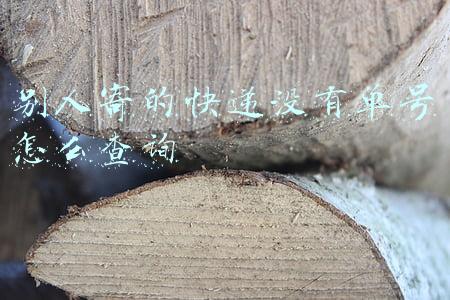 别人寄的快递没有单号
怎么查询